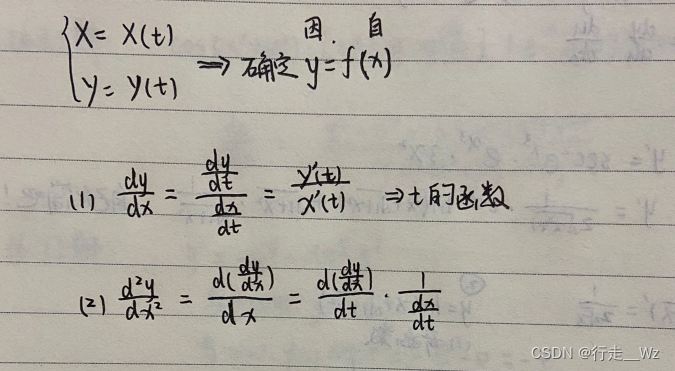 因. 自
{ X = X(t)
Y = Y(t) ⇒ 确定 y = f(x)
(1) dy/dx = (dy/dt)/(dx/dt) = y'(t)/x'(t) ⇒ t的函数
(2) d²y/dx² = d(dy/dx)/dx = d(dy/dx)/dt · 1/(dx/dt)
CSDN @行走__Wz